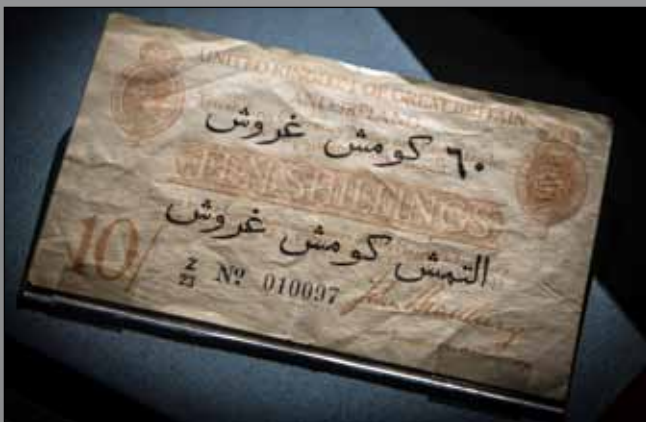 UNITED KINGDOM OF GREAT BRITAIN
AND IRELAND
٦٠ كومش غروش
TEN SHILLINGS
التمش كومش غروش
10/
Z
23 Nº 010097 John Bradbury